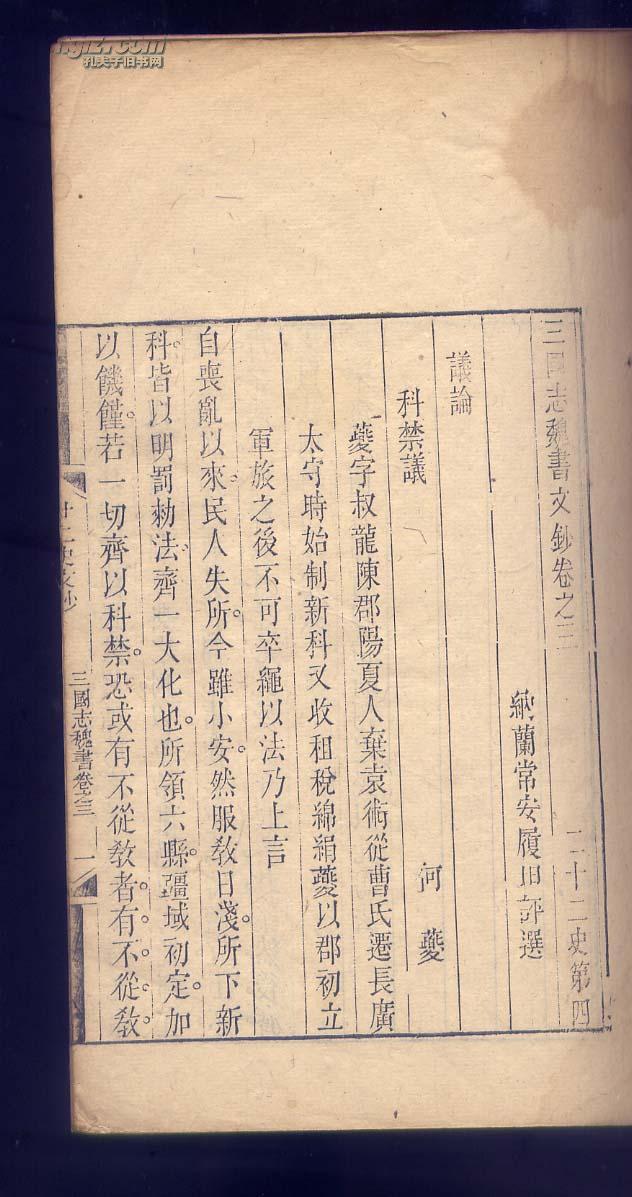 孔夫子旧书网
三國志魏書文鈔卷之三
二十二史第四
納蘭常安履坦評選
議論
科禁議
何夔
夔字叔龍陳郡陽夏人棄袁術從曹氏遷長廣
太守時始制新科又收租稅綿絹夔以郡初立
軍旅之後不可卒繩以法乃上言
自喪亂以來。民人失所。今雖小安。然服教日淺。所下新
科。皆以明罰勅法。齊一大化也。所領六縣。疆域初定。加
以饑饉。若一切齊以科禁。恐或有不從教者。有。不。從。教。
廿二史文鈔
三國志魏書卷之三
一